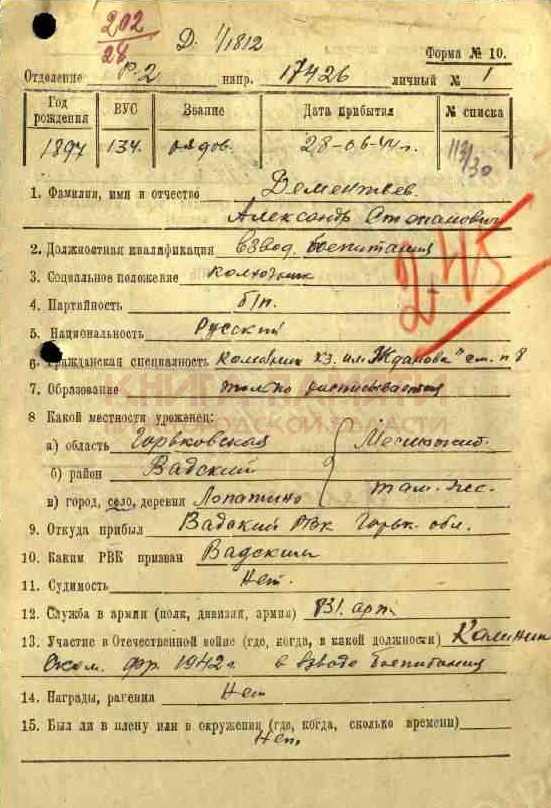 202
28
Д. 1/1812
Форма № 10.
Отделение Р-2 напр. 17426 личный № 1
Год рождения ВУС Звание Дата прибытия № списка
1897 134. рядов. 28-06-44г. 113/30
1. Фамилия, имя и отчество Дементьев
Александр Степанович
2-45
2. Должностная квалификация взвод. боепитания
3. Социальное положение колхозник
4. Партийность б/п.
5. Национальность Русский
6. Гражданская специальность кз. им. "Жданова"
7. Образование только расписывается
КНИГА ПАМЯТИ
НИЖЕГОРОДСКОЙ ОБЛАСТИ
8 Какой местности уроженец:
а) область Горьковская Местожит.
б) район Вадский
в) город, село, деревня Лопатино там-же.
9. Откуда прибыл Вадский РВК Горьк. обл.
10. Каким РВК призван Вадским
11. Судимость Нет.
12. Служба в армии (полк, дивизия, армия) 831. арт.
13. Участие в Отечественной войне (где, когда, в какой должности) Калинин
ском. фр. 1942г в взводе боепитания
14. Награды, ранения Нет
15. Был ли в плену или в окружении (где, когда, сколько времени)
Нет.